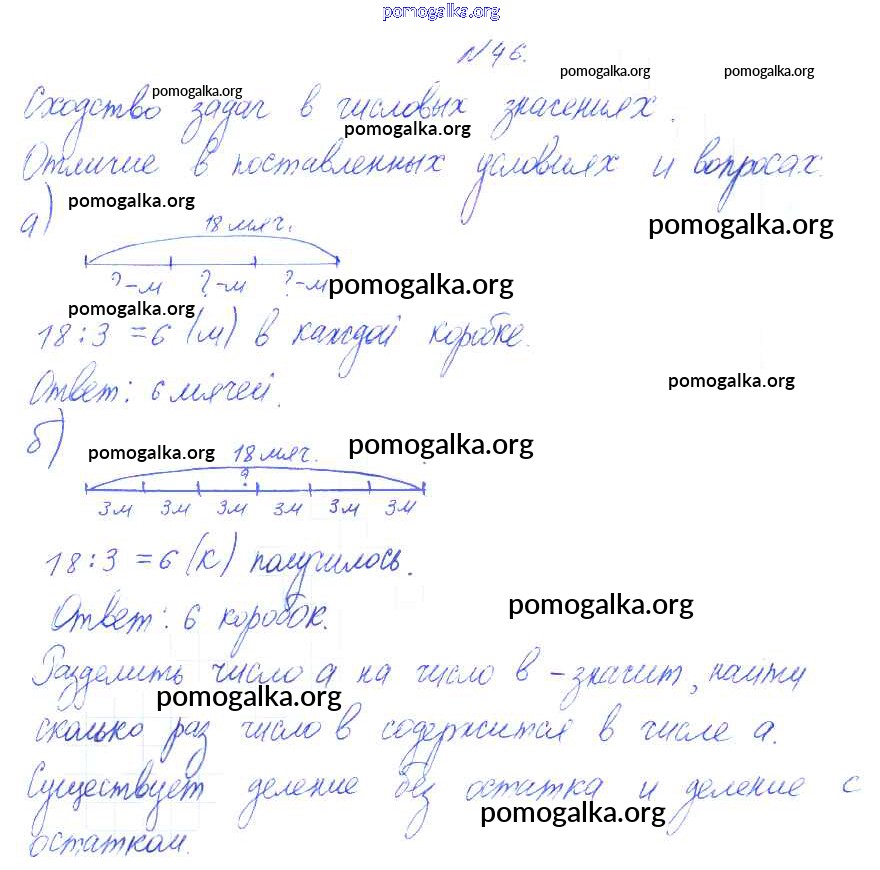 pomogalka.org
№46.
pomogalka.org pomogalka.org pomogalka.org
Сходство задач в числовых значениях.
pomogalka.org
Отличие в поставленных условиях и вопросах.
pomogalka.org
а) 18 мяч.
pomogalka.org
?-м ?-м ?-м
pomogalka.org
pomogalka.org
18:3=6 (м) в каждой коробке.
pomogalka.org
Ответ: 6 мячей.
б) 18 мяч.
pomogalka.org pomogalka.org
?
3м 3м 3м 3м 3м 3м
18:3=6 (к) получилось.
pomogalka.org
Ответ: 6 коробок.
Разделить число а на число в - значит, найти
pomogalka.org
сколько раз число в содержится в числе а.
Существует деление без остатка и деление с
pomogalka.org
остатком.